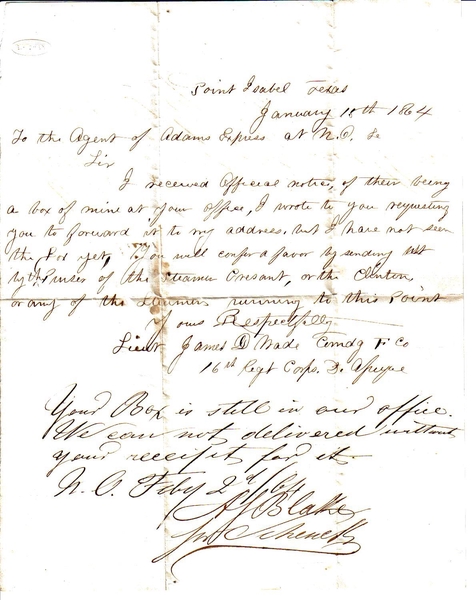 Point Isabel Texas
January 18th 1864
To the Agent of Adams Express at N.O. La
Sir
I received Official notice, of their being
a box of mine at your office, I wrote to you requesting
you to forward it to my address, but I have not seen
the Box yet, You will confer a favor by sending it
by the Purser of the Steamer Cresant, or the Clinton
or any of the Steamers running to this Point
Yours Respectfully
Lieut James D Wade Comdg F. Co
16th Regt Corps D. Afrique
Your Box is still in our office.
We can not delivered without
your receipt for it
N.O. Feby 2d /64
A J Blake
for Schenck